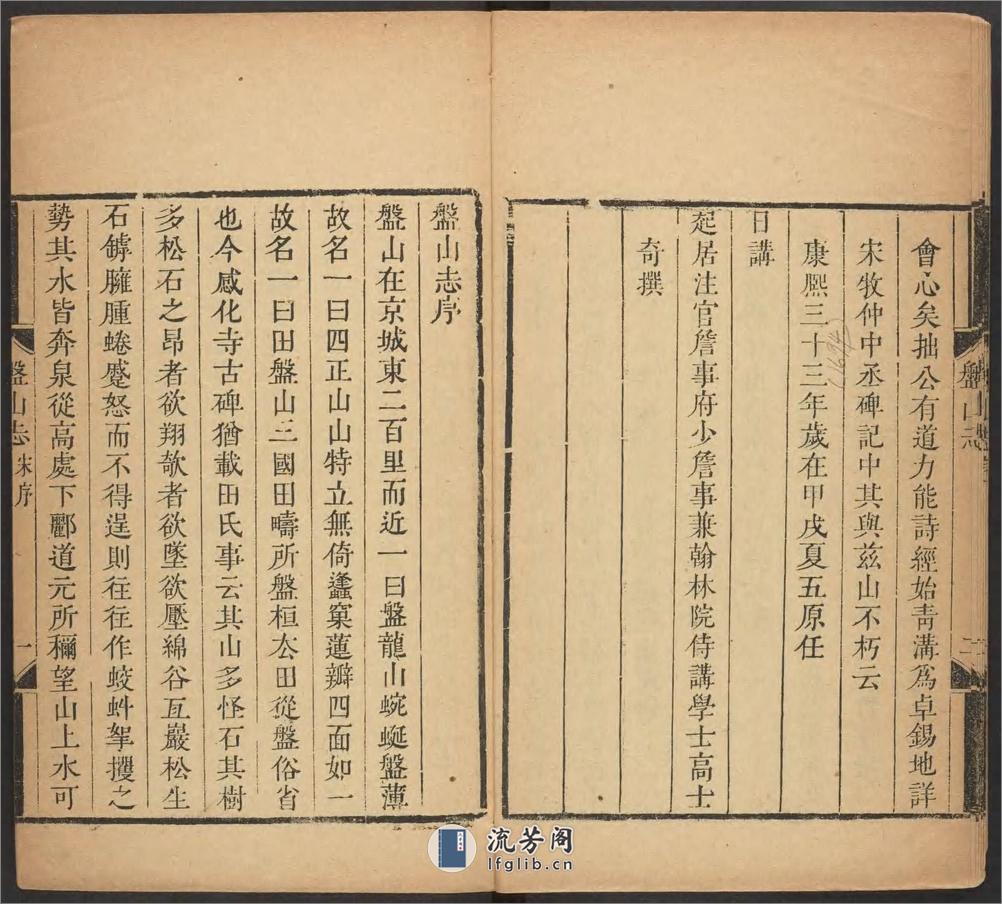 會心矣拙公有道力能詩經始靑溝爲卓錫地詳
宋牧仲中丞碑記中其與兹山不朽云
康熙三十三年歲在甲戌夏五原任
日講
起居注官詹事府少詹事兼翰林院侍講學士高士
奇撰
(1694)
盤山志
二
盤山志序
盤山在京城東二百里而近一曰盤龍山蜿蜒盤薄
故名一曰四正山山特立無倚蠭窠蓮瓣四面如一
故名一曰田盤山三國田疇所盤桓厺田從盤俗省
也今感化寺古碑猶載田氏事云其山多怪石其樹
多松石之昂者欲翔欹者欲墜欲壓綿谷亙巖松生
石罅臃腫蜷蹙怒而不得逞則往往作蛟虯挐攫之
勢其水皆奔泉從高處下酈道元所稱望山上水可
盤山志
宋序
一
流芳阁
lfglib.cn